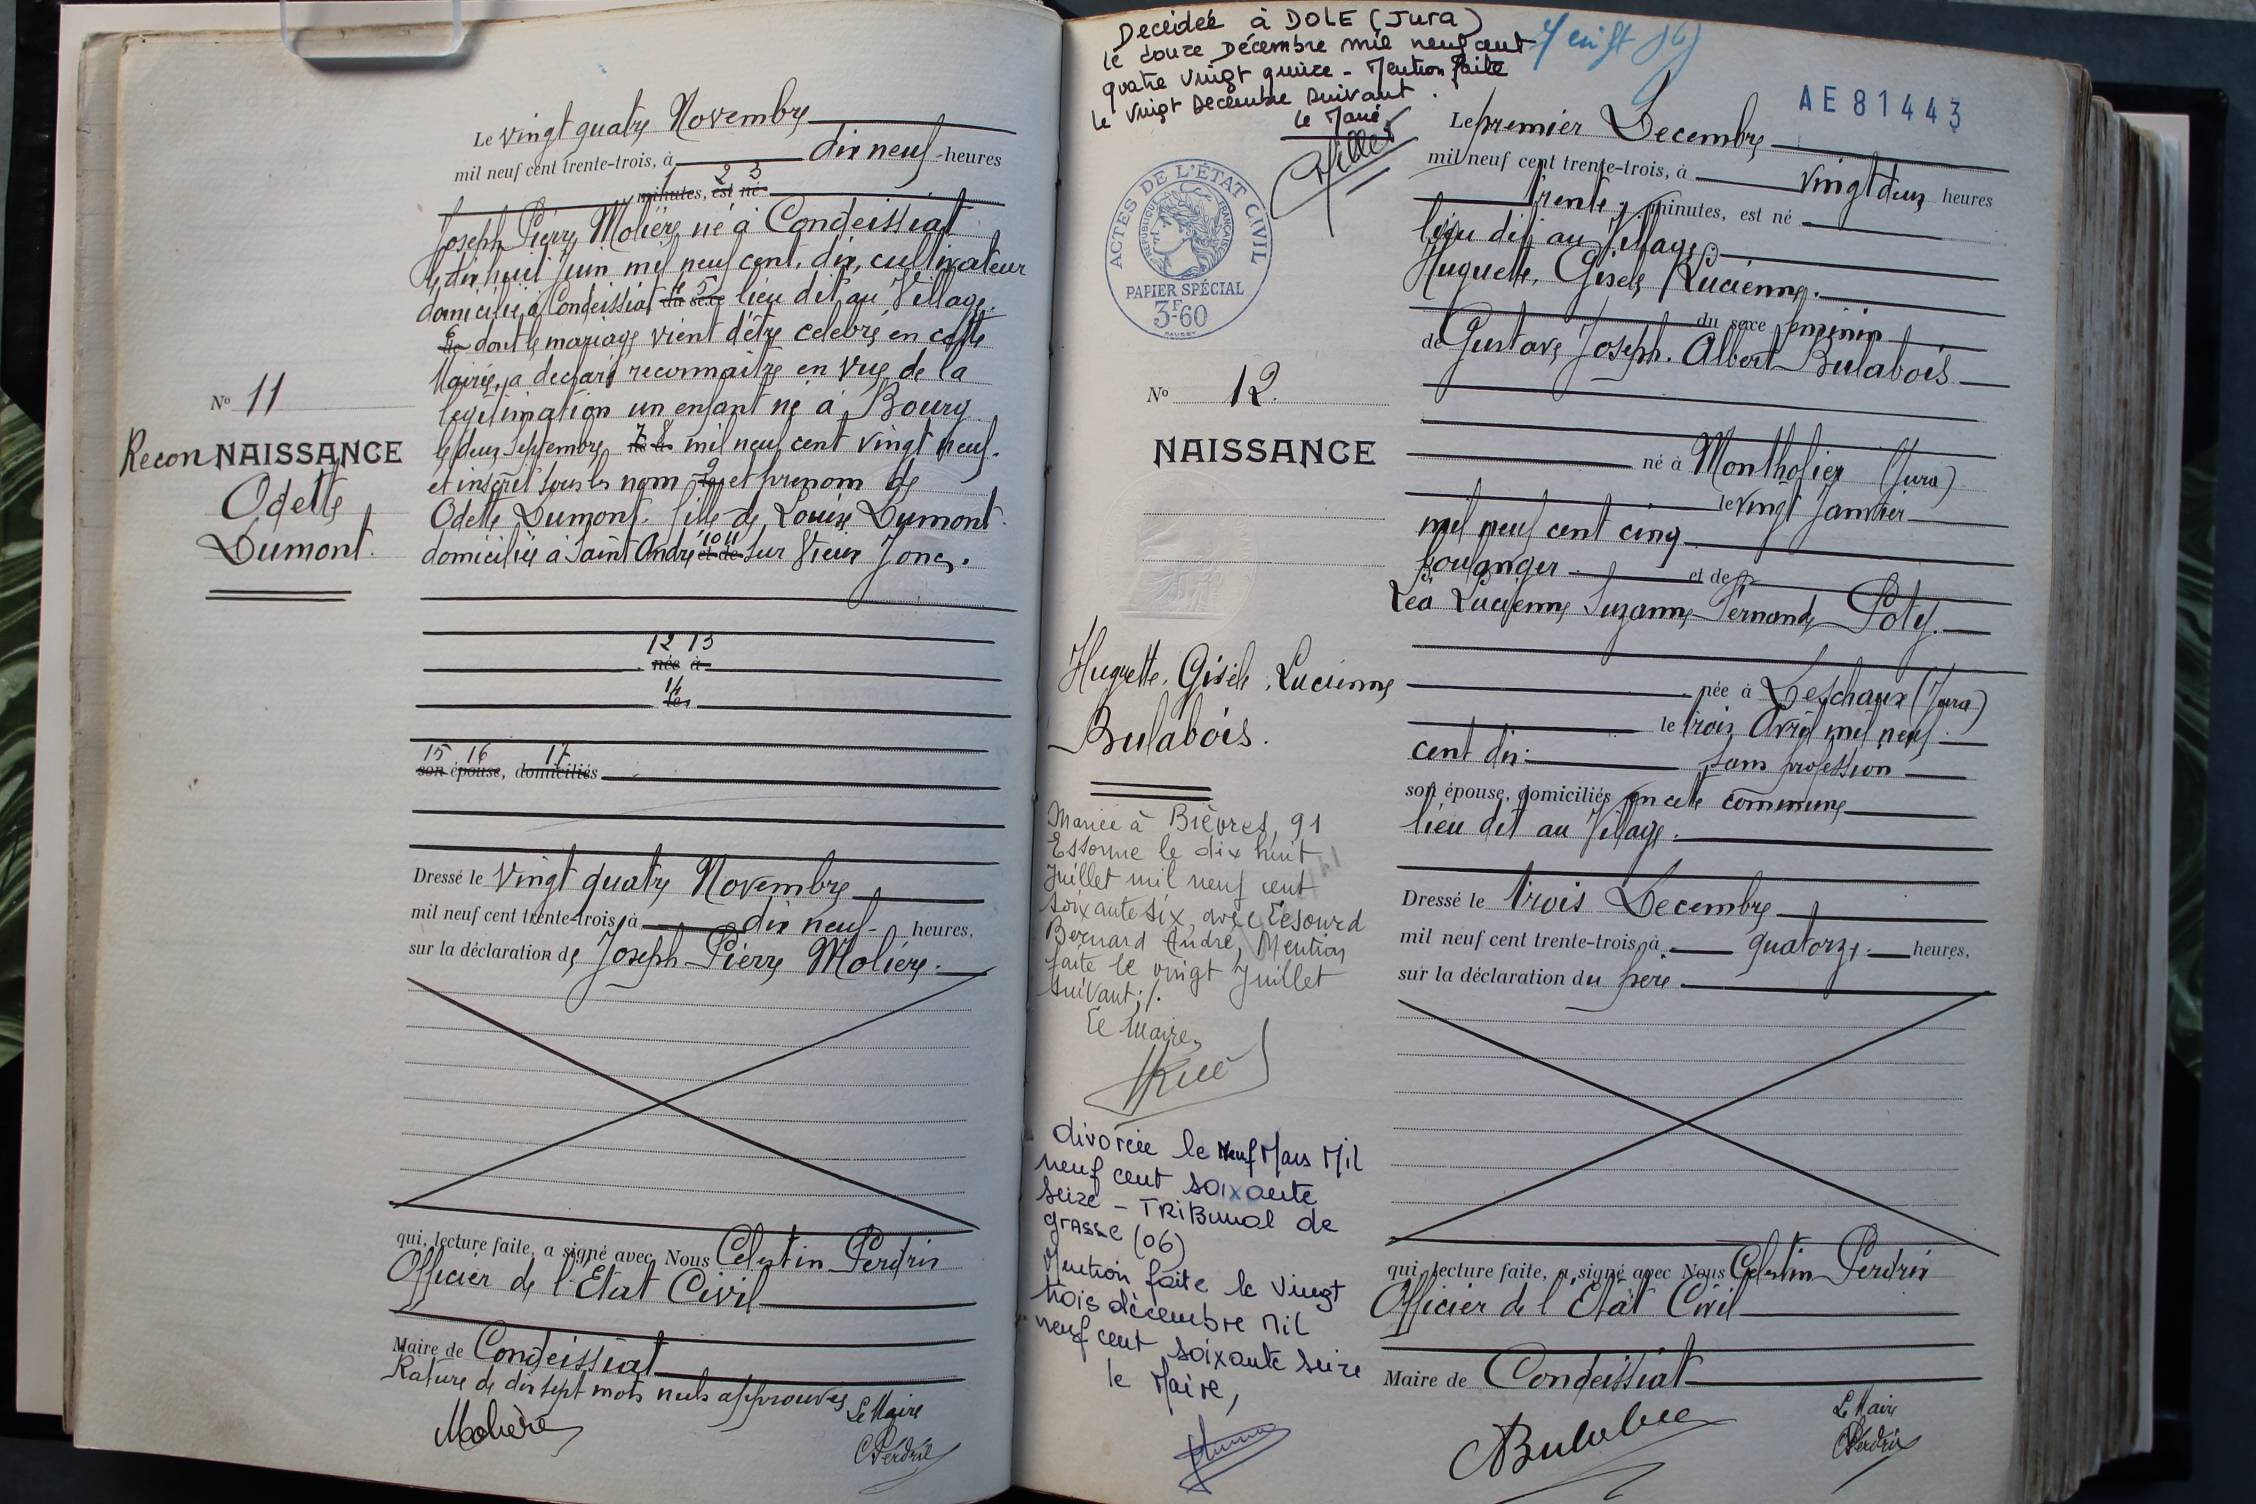 Le vingt quatre Novembre
mil neuf cent trente-trois, à dix neuf heures
1 2 3
minutes, est né
Joseph Pierre Molière né à Condeissiat
le dix huit Juin mil neuf cent dix, cultivateur
domicilié à Condeissiat du sexe lieu dit au Village.
de dont le mariage vient d'être célébré en cette
Mairie, a déclaré reconnaître en vue de la
légitimation un enfant né à Bourg
le deux Septembre mil neuf cent vingt neuf.
et inscrit sous les nom et prénom de
Odette Dumont. fille de Louise Dumont
10 11
domiciliée à Saint André et de sur Vieux Jonc.
12 13
née à
14
le
15 16 17
son épouse, domiciliés
Nº 11
Recon NAISSANCE
Odette
Dumont.
Dressé le vingt quatre Novembre
mil neuf cent trente-trois, à dix neuf heures,
sur la déclaration de Joseph Pierre Molière.
qui, lecture faite, a signé avec Nous Celestin Perdrix
Officier de l'Etat Civil
Maire de Condeissiat
Rature de dix sept mots nuls approuvés Le Maire
Molière
CPerdrix
Decédée à DOLE (Jura)
le douze Décembre mil neuf cent
quatre vingt quinze - Mention faite
le vingt Decembre suivant.
le Maire
AE81443
ACTES DE L'ÉTAT CIVIL
RÉPUBLIQUE FRANÇAISE
PAPIER SPÉCIAL
3F60
Nº 12.
NAISSANCE
Huguette, Gisèle, Lucienne
Bulabois.
Mariée à Bièvres, 91
Essonne le dix huit
Juillet mil neuf cent
soixante six, avec Lesourd
Bernard André, Mention
faite le vingt Juillet
suivant ; /.
Le Maire,
divorcée le Neuf Mars Mil
neuf cent soixante
seize - TRiBunal de
grasse (06)
Mention faite le Vingt
trois décembre Mil
neuf cent soixante seize
le Maire,
Le premier Decembre
mil neuf cent trente-trois, à vingt deux heures
trente minutes, est né
lieu dit au Village
Huguette, Gisele Lucienne.
du sexe féminin
de Gustave Joseph. Albert Bulabois
né à Montholier (Jura)
le vingt Janvier
mil neuf cent cinq
boulanger et de
Léa Lucienne Suzanne Fernande Poty.
née à Leschaux (Jura)
le trois Avril mil neuf
cent dix. sans profession
son épouse, domiciliés en cette commune
lieu dit au Village.
Dressé le trois Decembre
mil neuf cent trente-trois, à quatorze heures,
sur la déclaration du père
qui, lecture faite, a signé avec Nous Celestin Perdrix
Officier de l'Etat Civil
Maire de Condeissiat
Le Maire
CPerdrix